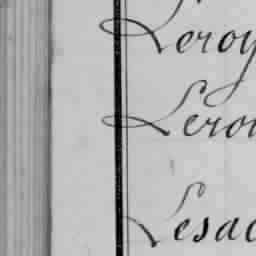 Leroy
Lerou
Lesac